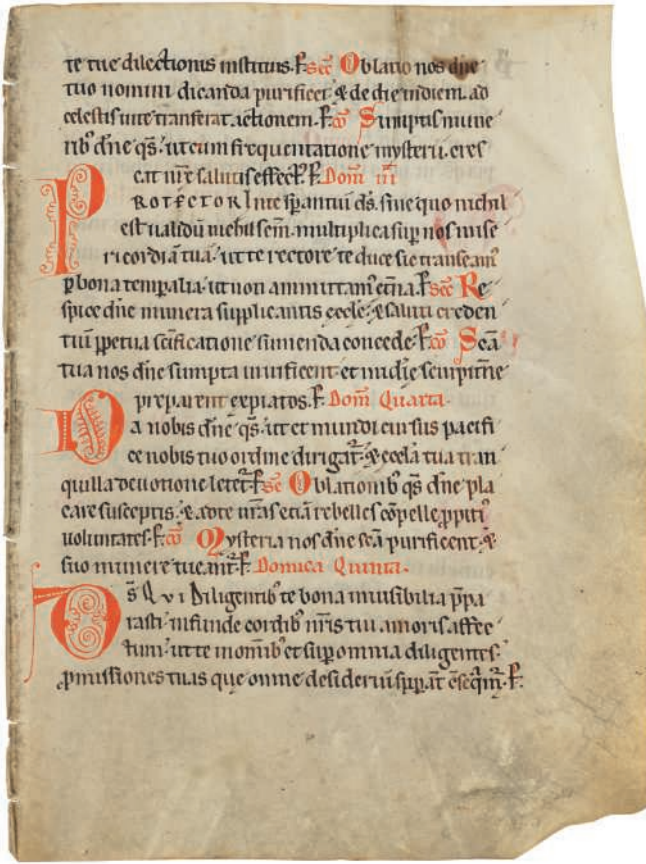 te tue dilectionis instituis. P̄ sec̄ Oblatio nos dn̄e
tuo nomini dicanda purificet. & de die indiem. ad
celestis uite transferat. actionem. P̄ cō Sumptis mune
rib' dn̄e qs̄. ut cum frequentatione mysterii. cres
cat nr̄e salutis effect'. P̄ Dom̄ iii
PROTECTOR Inte sp̄antiū ds̄. sine quo nichil
est ualidū nichil sc̄m. multiplica sup̄ nos mise
ricordiā tuā. ut te rectore te duce sic transeam'
p̄ bona temp̄alia. ut non ammittam' et̄na. P̄ sec̄ Re
spice dn̄e munera supplicantis eccl̄e. & saluti creden
tiū p̄petua sc̄ificatione sumenda concede. P̄ cō Sc̄a
tua nos dn̄e sumpta uiuificent. et mc̄die sempit̄ne
preparent expiatos. P̄ Dom̄ Quarta.
Da nobis dn̄e qs̄. ut et mundi cursus pacifi
ce nobis tuo ordine dirigat̄. & eccl̄a tua tran
quilla deuotione letet̄. P̄ se Oblationib' qs̄ dn̄e pla
care susceptis. & ad te nr̄as etiā rebelles cōpelle p̄piti'
uoluntates. P̄ cō Mysteria nos dn̄e sc̄a purificent. &
suo munere tueant̄. P̄ Domica Quinta.
Ds̄ Qui Diligentib' te bona inuisibilia p̄pa
rasti. infunde cordib' nr̄is tui amoris affec
tum. ut te in om̄ib' et sup̄ omnia diligentes.
p̄missiones tuas que omne desideriū sup̄ant c̄seq̄m̄. P̄.